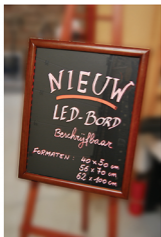 NIEUW
LED-BORD
Beschrijfbaar
FORMATEN: 40 x 50 cm
56 x 70 cm
62 x 100 cm